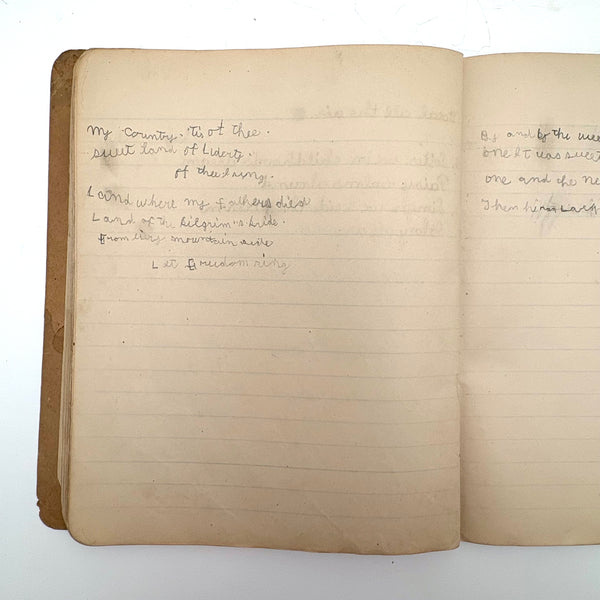 My Country, 'tis of thee.
sweet land of Liberty.
of thee I sing.
Land where my fathers died
Land of the pilgrim's pride.
From every mountain side
Let Freedom ring
By and by the wee
one It was sweet
one and the ne
Then him Lark